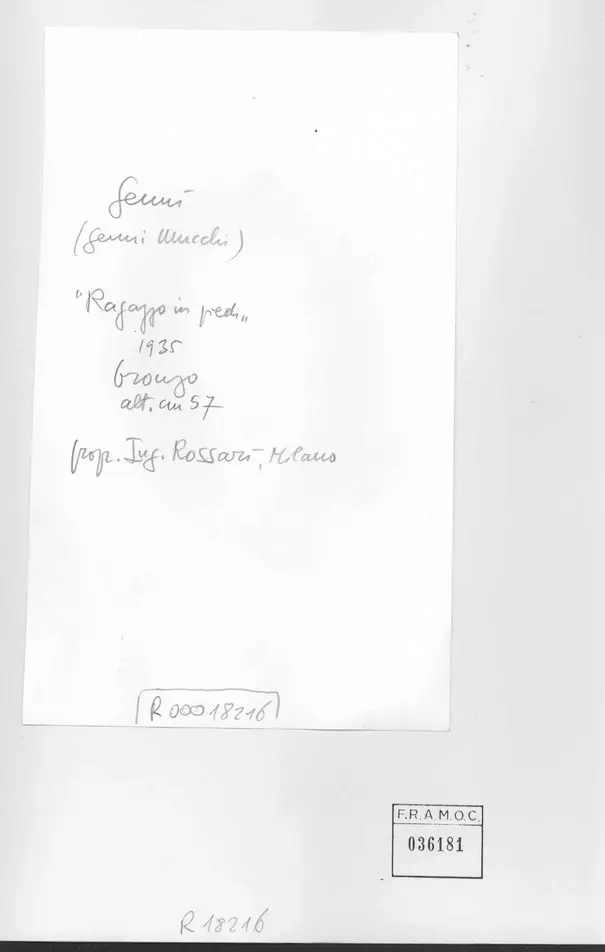 Genni
(Genni Mucchi)
"Ragazzo in piedi„
1935
bronzo
alt. cm 57
prop. Ing. Rossari, Milano
R 00018216
F.R.A.M.O.C.
036181
R 18216